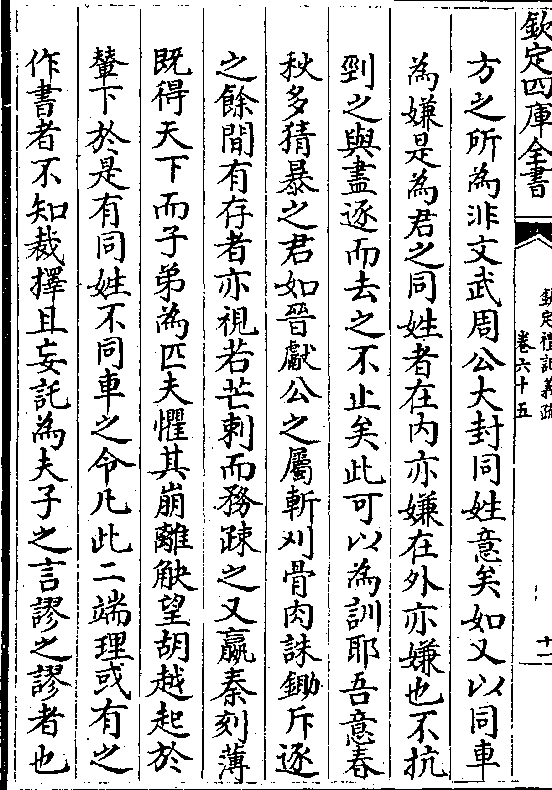 欽定四庫全書
欽定禮記義疏
卷六十五
十一
方之所為非文武周公大封同姓意矣如又以同車
為嫌是為君之同姓者在内亦嫌在外亦嫌也不抗
剄之與盡逐而去之不止矣此可以為訓耶吾意春
秋多猜暴之君如晉獻公之屬斬刈骨肉誅鋤斥逐
之餘間有存者亦視若芒刺而務疎之又嬴秦刻薄
既得天下而子弟為匹夫懼其崩離觖望胡越起於
輦下於是有同姓不同車之令凡此二端理或有之
作書者不知裁擇且妄託為夫子之言謬之謬者也